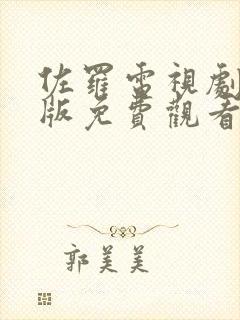 佐羅電視劇
版免費觀看
郭美美